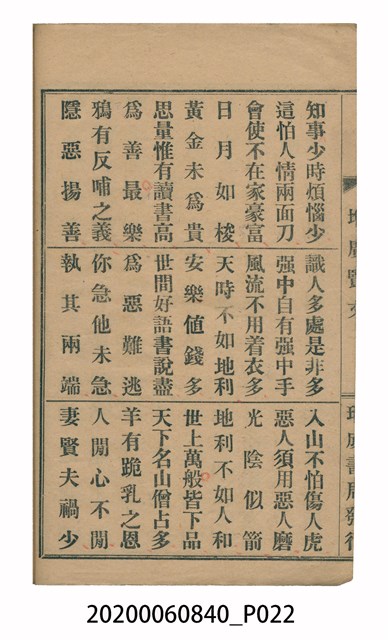 增廣賢文
書局發行
知事少時煩惱少 識人多處是非多 入山不怕傷人虎
這怕人情兩面刀 强中自有强中手 惡人須用惡人磨
會使不在家豪富 風流不用着衣多 光陰似箭
日月如梭 天時不如地利 地利不如人和
黃金未爲貴 安樂値錢多 世上萬般皆下品
思量惟有讀書高 世間好語書說盡 天下名山僧占多
爲善最樂 爲惡難逃 羊有跪乳之恩
鴉有反哺之義 你急他未急 人閒心不閒
隱惡揚善 執其兩端 妻賢夫禍少
20200060840_P022